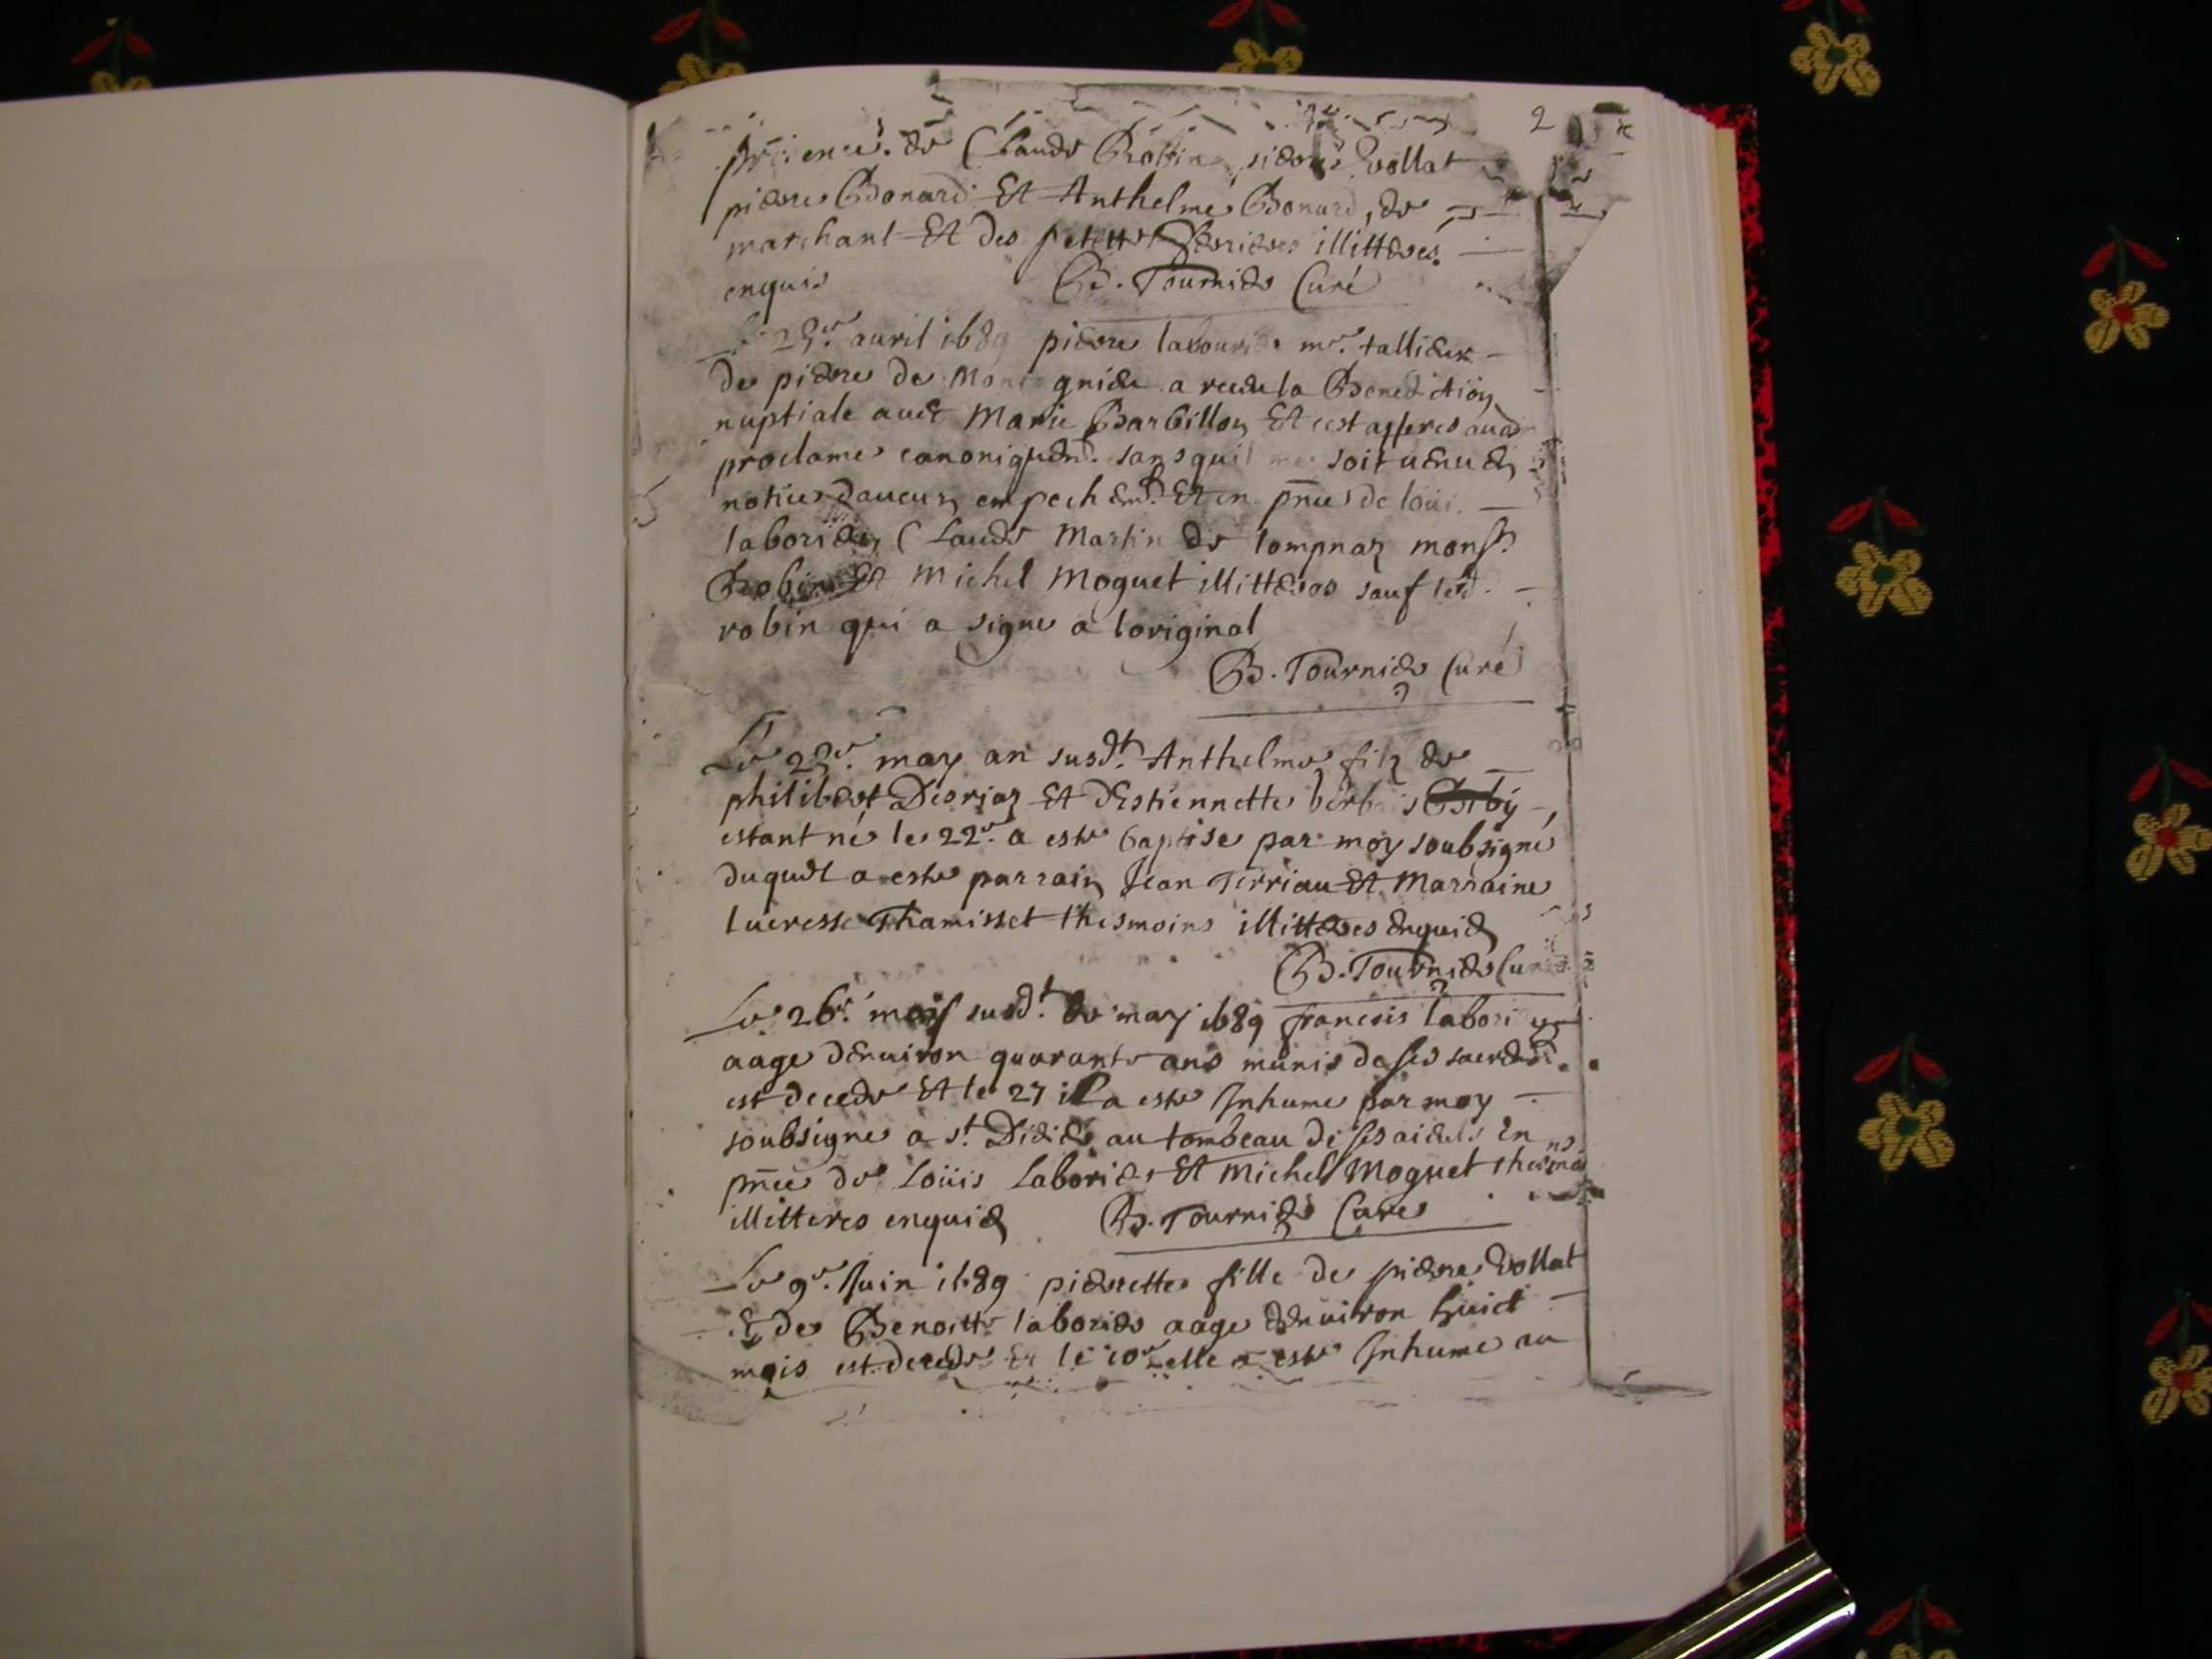 2
presence de Claude Robin pierre Vollat
pierre Bonard Et Anthelme Bonard, de
marchant Et des petittes illitteres
enquis B. Tournier Curé
Le avril 1689 pierre labourier me. tallieur
de pierre de Montagnieu a receu la Benediction
nuptiale avec Marie Barbillon Et cest apperes avoir
proclame canoniquemt. sans quil me soit venu en
notice daucun empechemt. Et en pnce de loüi
laborier, Claude Martin de lompnaz monsr.
Robin Et Michel Moguet illitteres sauf led.
robin qui a signe a loriginal
B. Tournier Curé
Le 23e. may an susdt. Anthelme filz de
philibert Desriaz Et dEstiennette berb
estant né le 22e. a este baptise par moy soubsigné
duquel a este parrain Jean Terriau Et Marraine
lucresse Thamisset thesmoins illitteres enquis
B. Tournier Curé
Le 26e. moys susdt. de may 1689 francois laborier
aage denviron quarante ans munis de ses sacremt.
est decede Et le 27 il a este Inhume par moy
soubsigne a st. Didier au tombeau de ses aieuls En
pnce de Loüis Laborier Et Michel Moguet thesmoins
illitteres enquis B. Tournier Curé
Le 9e. Juin 1689 pierrette fille de pierre Vollat
& de Benoitte laborier aage denviron huict
mois est decede Et le 10e elle a este Inhume au